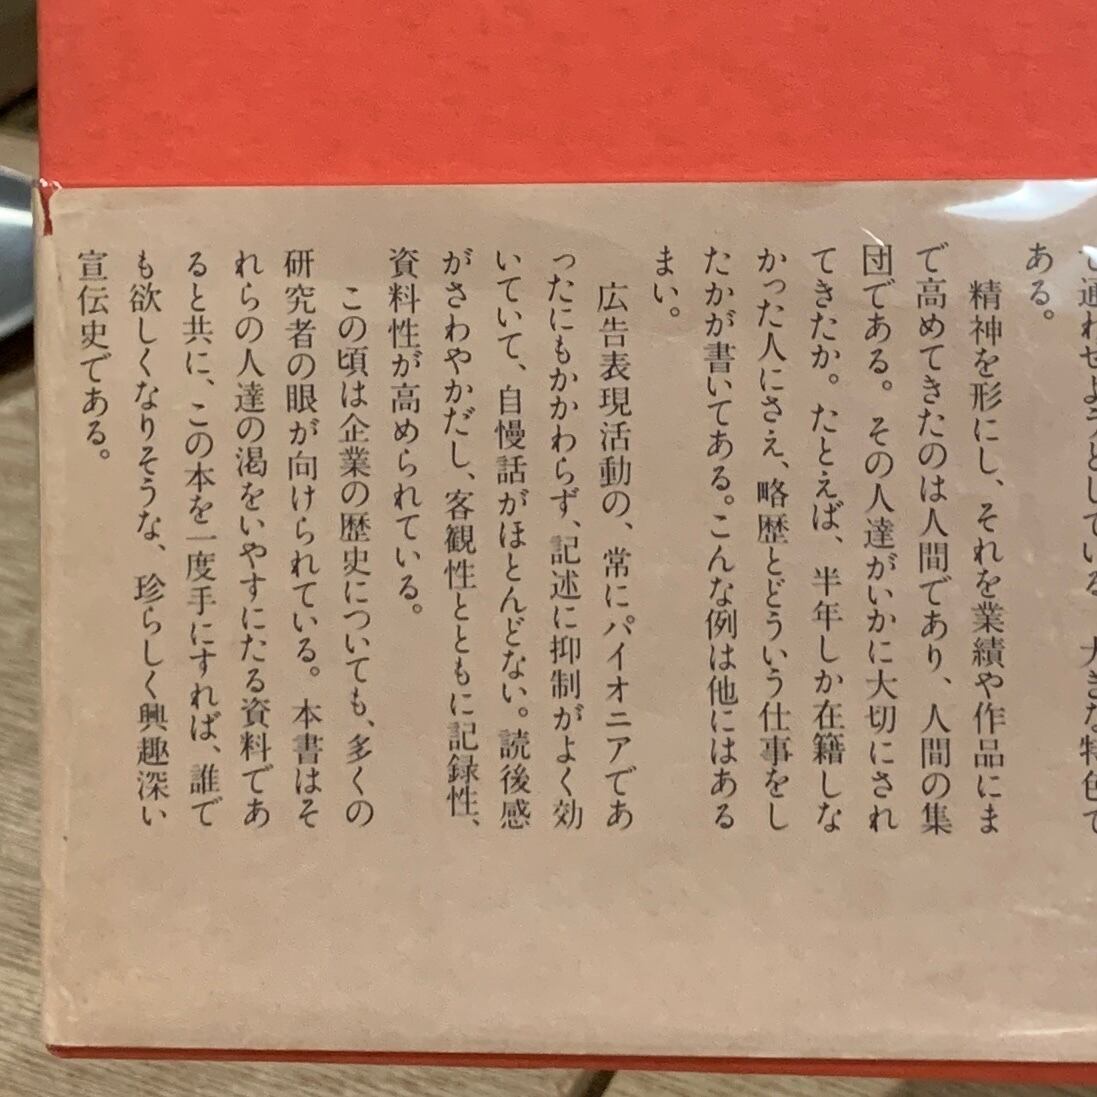 で通わせようとしている。大きな特色で
ある。
精神を形にし、それを業績や作品にま
で高めてきたのは人間であり、人間の集
団である。その人達がいかに大切にされ
てきたか。たとえば、半年しか在籍しな
かった人にさえ、略歴とどういう仕事をし
たかが書いてある。こんな例は他にはある
まい。
広告表現活動の、常にパイオニアであ
ったにもかかわらず、記述に抑制がよく効
いていて、自慢話がほとんどない。読後感
がさわやかだし、客観性とともに記録性、
資料性が高められている。
この頃は企業の歴史についても、多くの
研究者の眼が向けられている。本書はそ
れらの人達の渇をいやすにたる資料であ
ると共に、この本を一度手にすれば、誰で
も欲しくなりそうな、珍らしく興趣深い
宣伝史である。